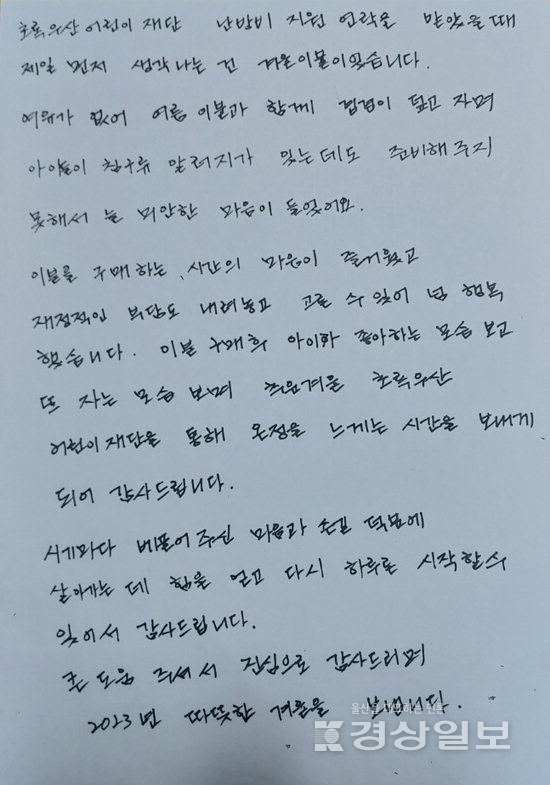 초록우산 어린이 재단 난방비 지원 연락을 받았을 때
제일 먼저 생각나는 건 겨울이불이있습니다.
여유가 없어 여름 이불과 함께 겹겹이 덮고 자며
아이들이 침구류 알러지가 있는데도 준비해 주지
못해서 늘 미안한 마음이 들었어요.
이불을 구매하는 시간의 마음이 즐거웠고
재정적인 부담도 내려놓고 고를 수 있어 넘 행복
했습니다. 이불 구매 후 아이와 좋아하는 모습 보고
또 자는 모습 보며 추운겨울을 초록우산
어린이 재단을 통해 온정을 느끼는 시간을 보내게
되어 감사드립니다.
시기마다 베풀어 주신 마음과 손길 덕분에
살아가는 데 힘을 얻고 다시 하루를 시작할수
있어서 감사드립니다.
큰 도움 주셔서 진심으로 감사드리며
2023년 따뜻한 겨울을 보냅니다.
경상일보